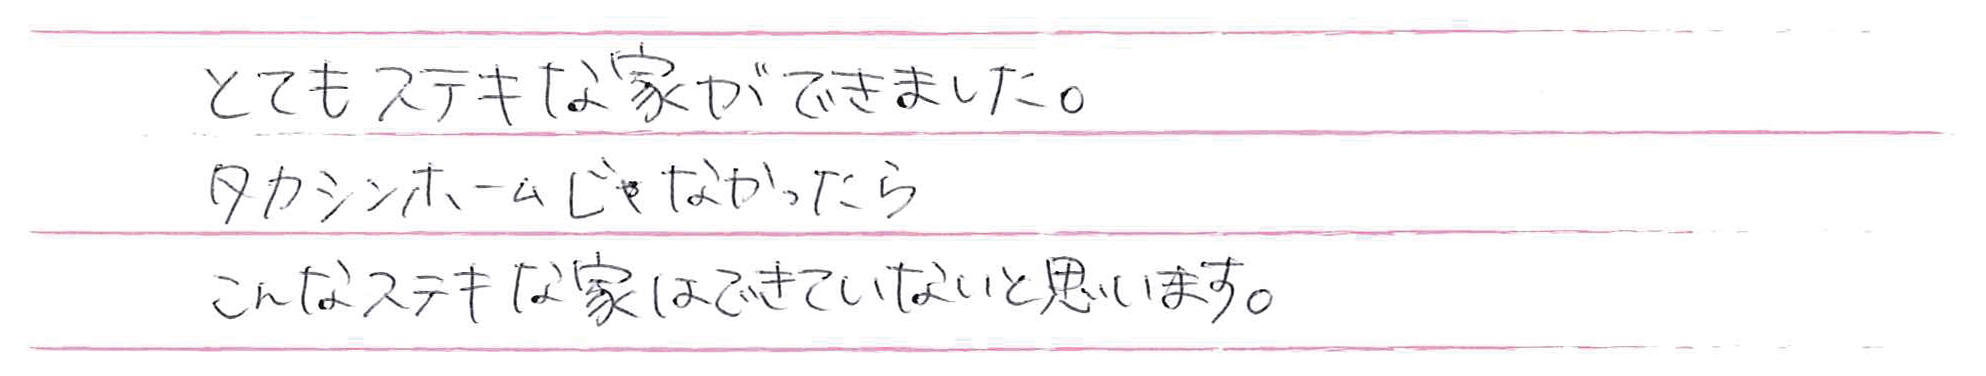 とてもステキな家ができました。
タカシンホームじゃなかったら
こんなステキな家はできていないと思います。